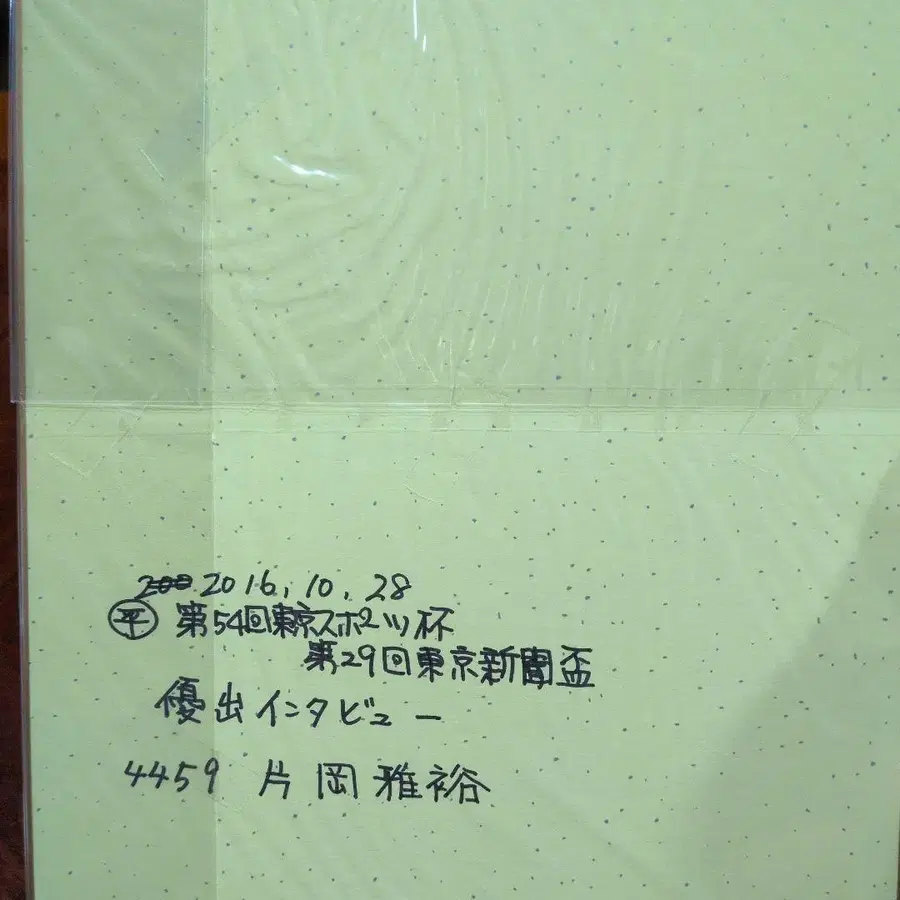 2016.10.28
㊄平 第54回東京スポーツ杯
第29回東京新聞盃
優出インタビュー
4459 片岡雅裕